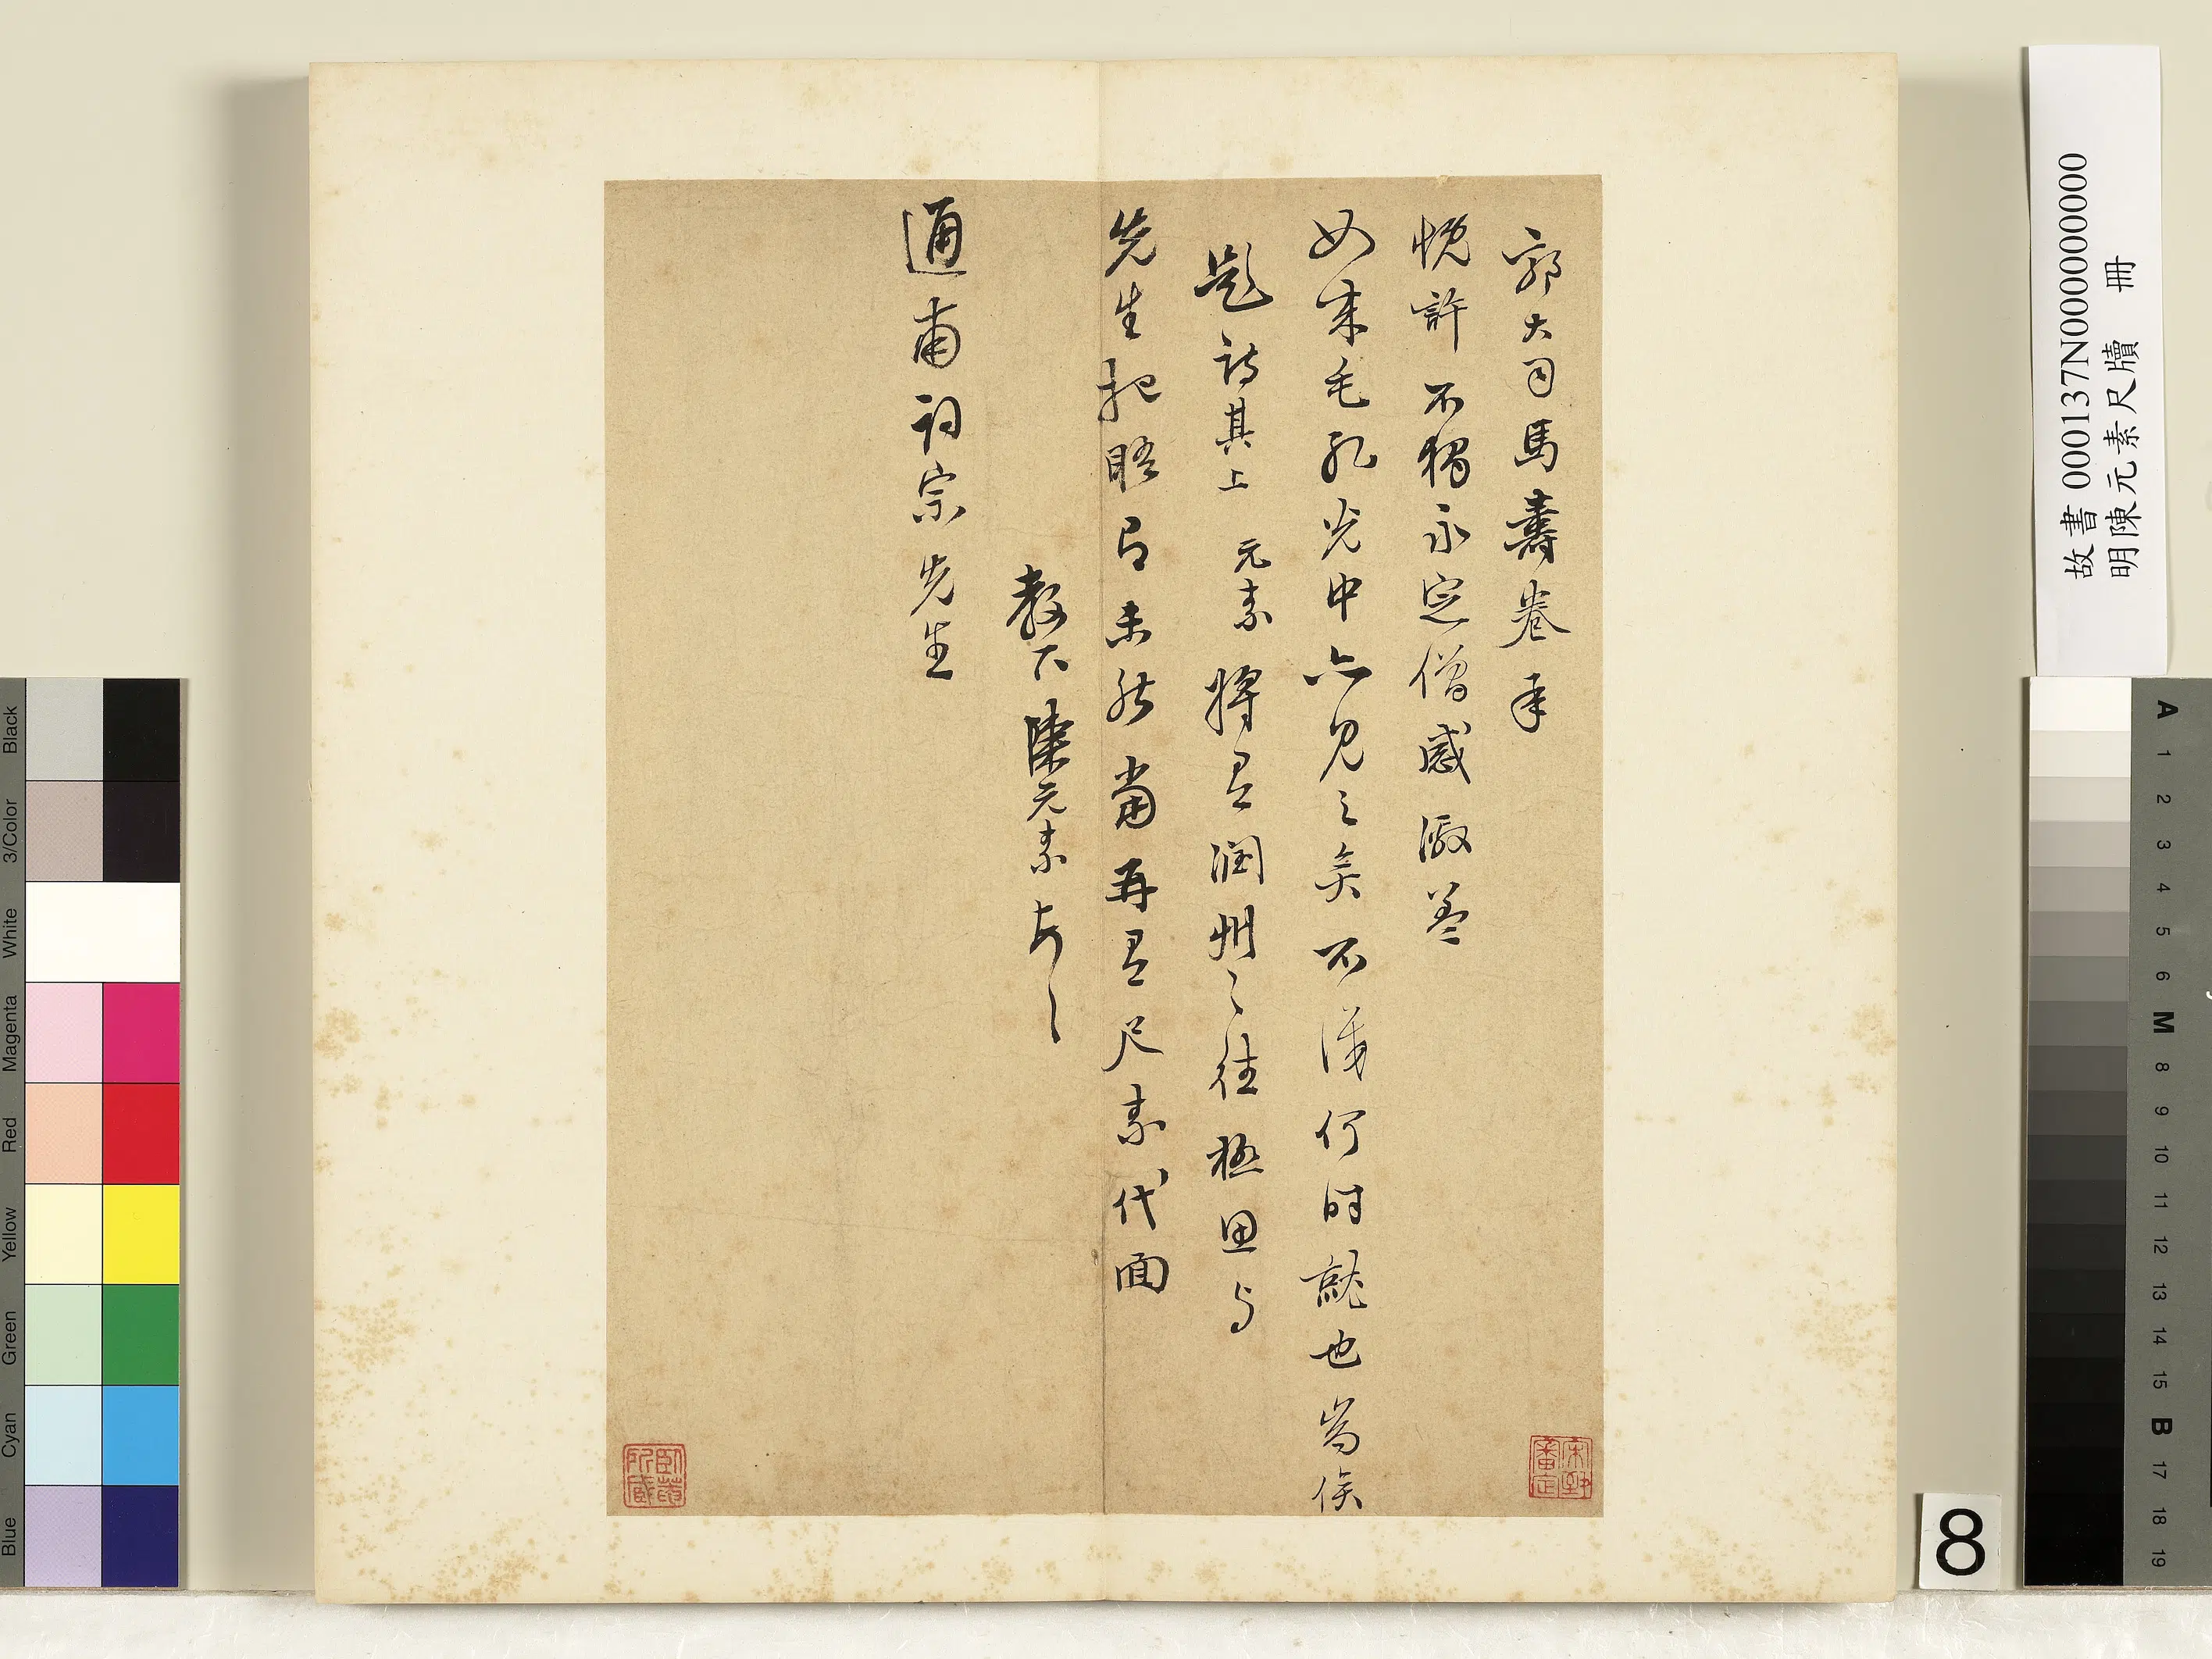 郭大司馬壽卷承
悅許不獨永定僧感激蓋
如來毛孔光中亦見之矣不識何時就也當俟
題詩其上元素將有潤州之往極思与
先生把晤而未能當再有尺素代面
教下陳元素
通甫詞宗先生
故書000137N000000000
明陳元素尺牘 冊
8
Black
3/Color
White
Magenta
Red
Yellow
Green
Cyan
Blue
A 1 2 3 4 5 6 M 8 9 10 11 12 13 14 15 B 17 18 19